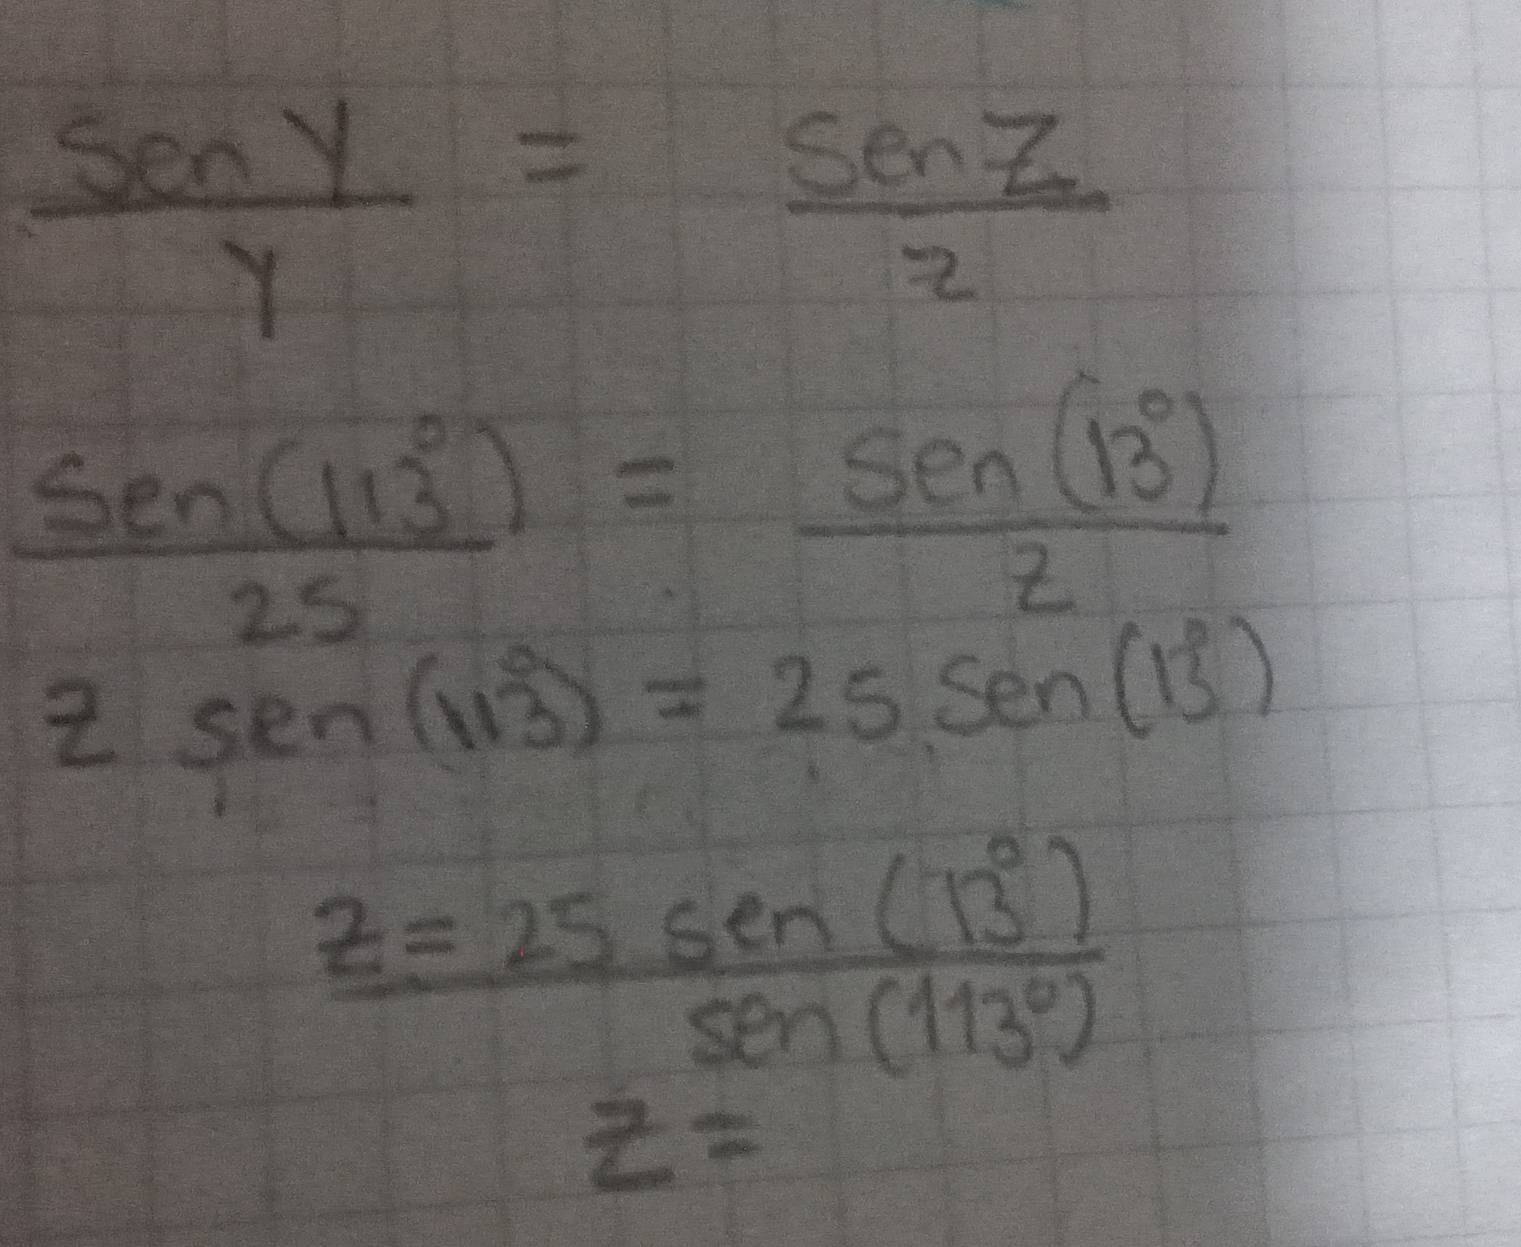 Sen Y = Sen Z
Y z
Sen (113°) = Sen (13°)
25 z
z sen (113°) = 25 Sen (13°)
z = 25 sen (13°)
sen (113°)
z =